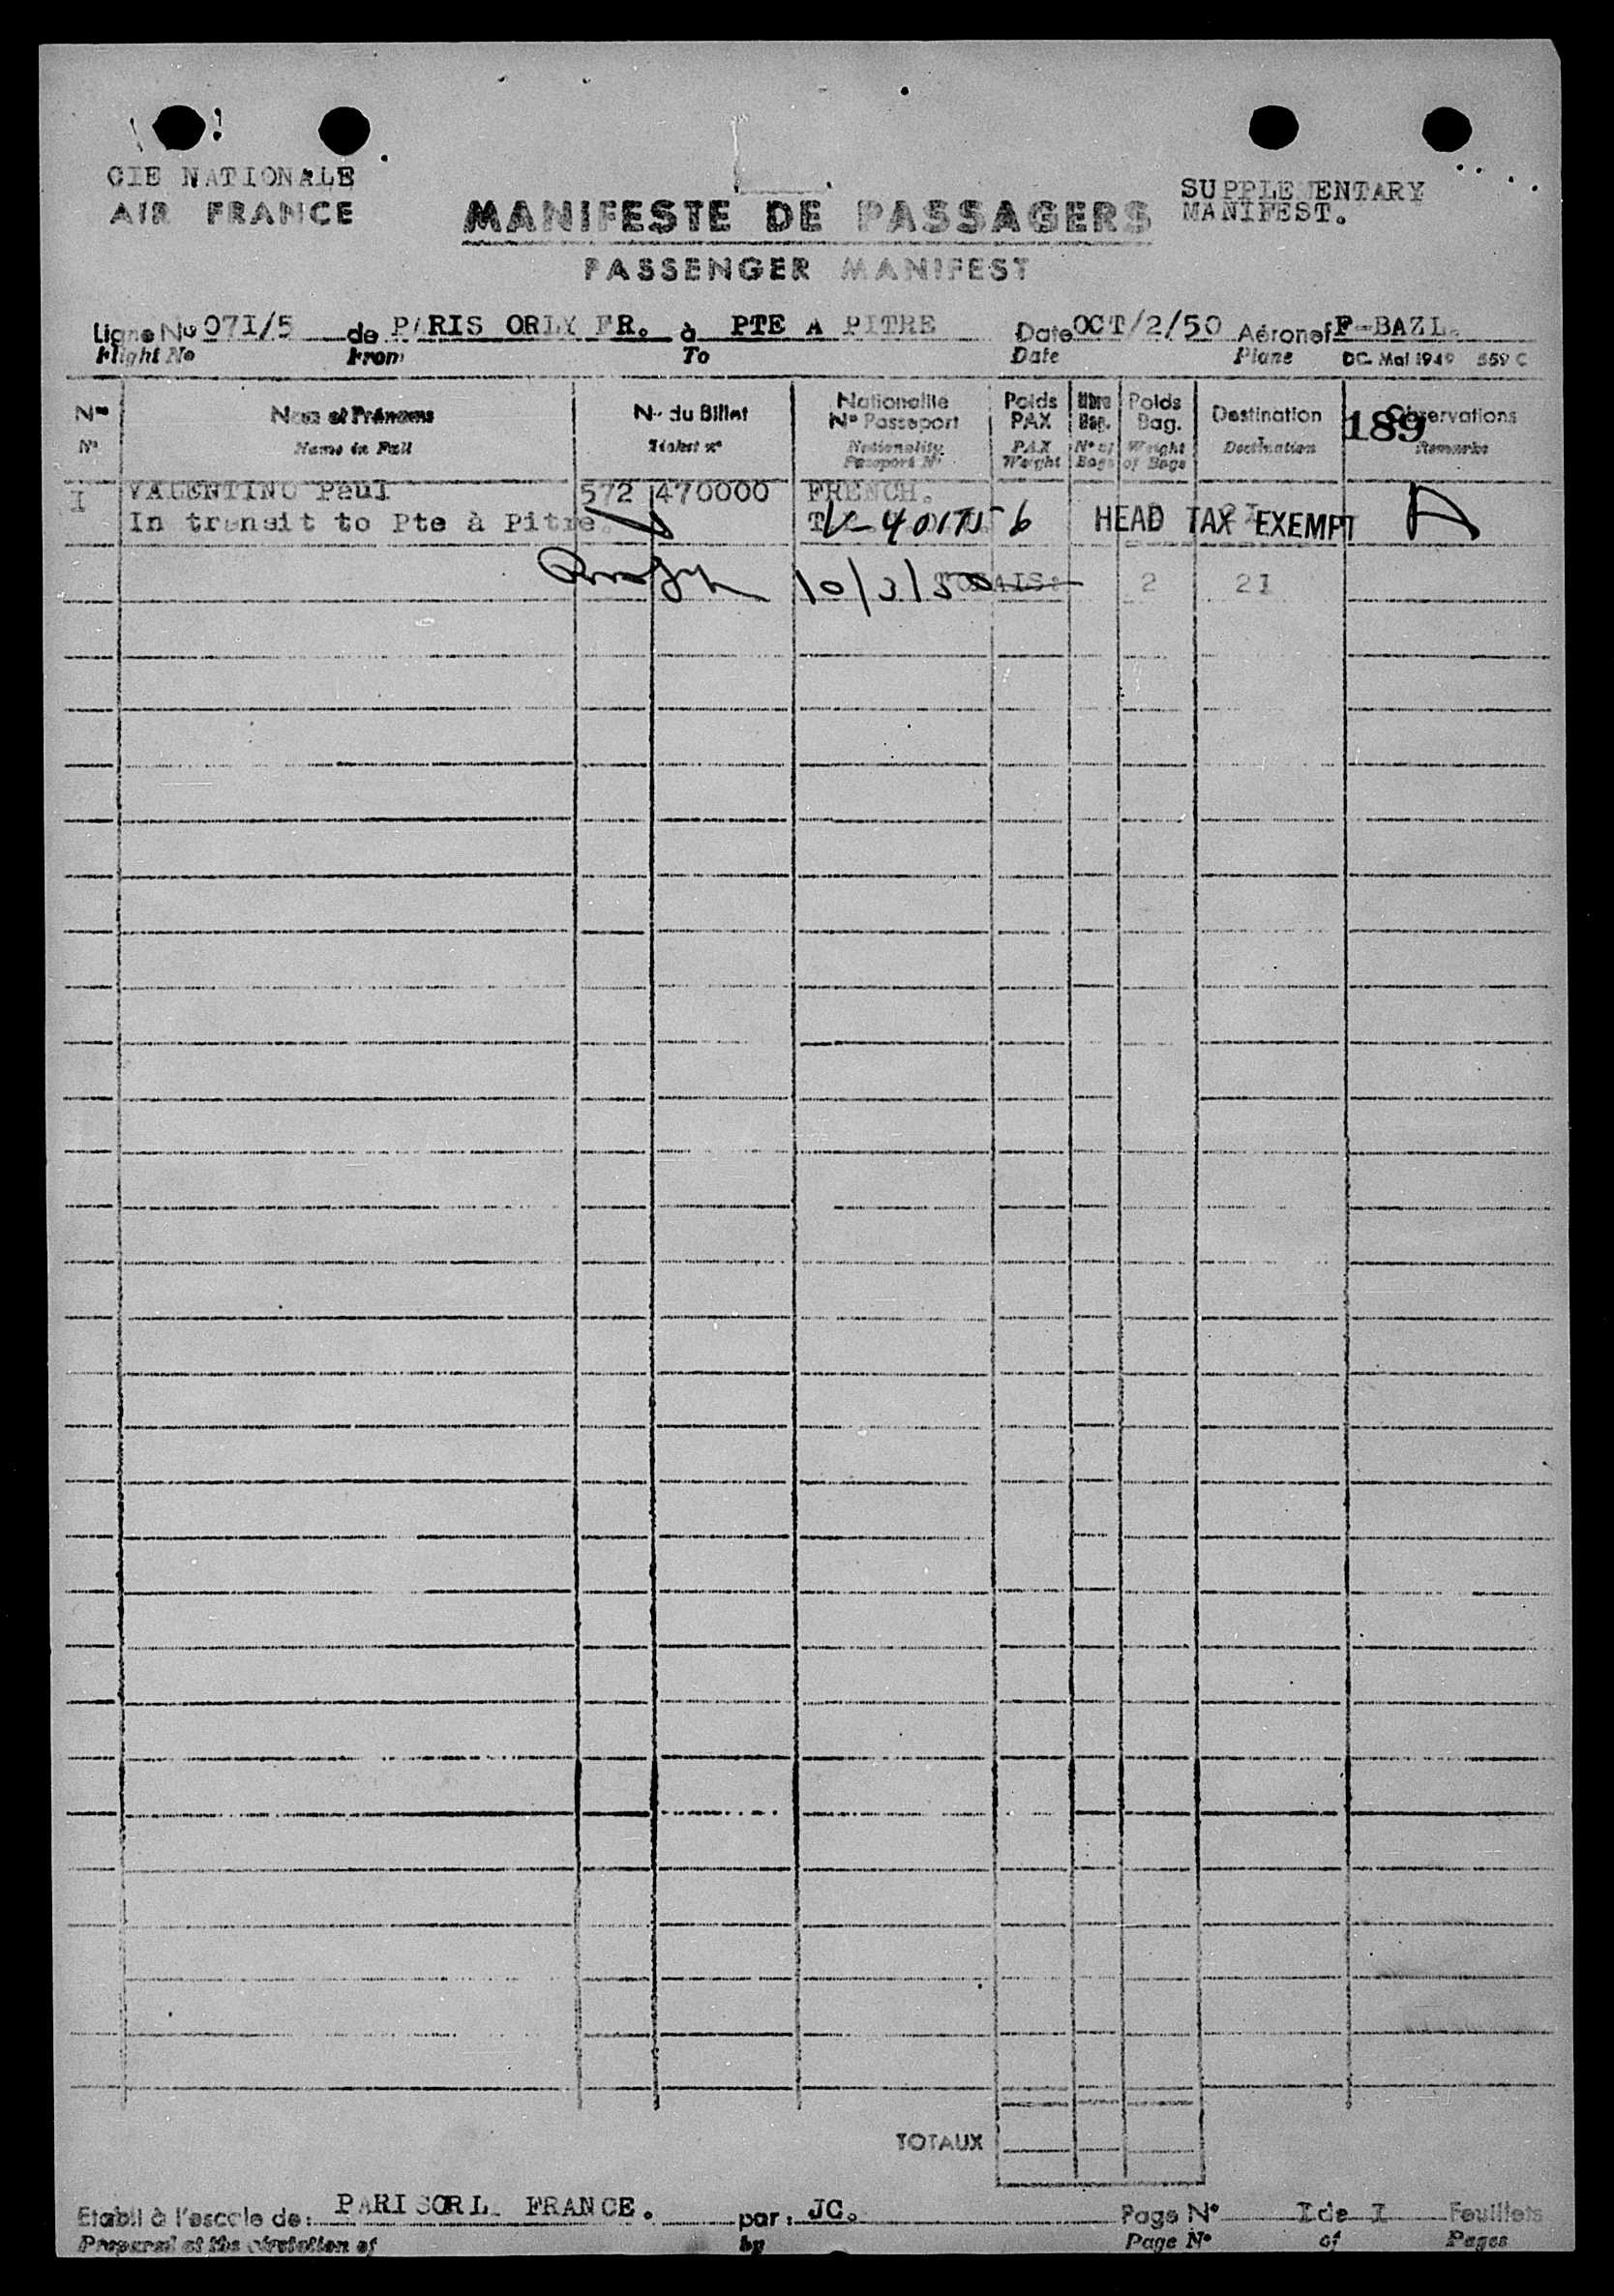 CIE NATIONALE
AIR FRANCE
SUPPLEMENTARY
MANIFEST.
MANIFESTE DE PASSAGERS
PASSENGER MANIFEST
Ligne No 071/5 de PARIS ORLY FR. à PTE A PITRE Date OCT/2/50 Aéronef F-BAZL.
Flight No From To Date Plane DC. Mai 1949 559 C
Nos Noms et Prénoms No du Billet Nationalité No Passeport Poids PAX Nbre Bag. Poids Bag. Destination Observations
No Name in Full Ticket No Nationality Passport No PAX Weight No of Bags Weight of Bags Destination Remarks
189
I VALENTINO Paul 572 470000 FRENCH.
In transit to Pte à Pitre. V-401756 HEAD TAX EXEMPT
10/3/50 TOTALS: 2 21
TOTAUX
Etabli à l'escale de: PARISORL FRANCE. par: JC. Page No I de I Feuillets
Prepared at the station of by Page No of Pages